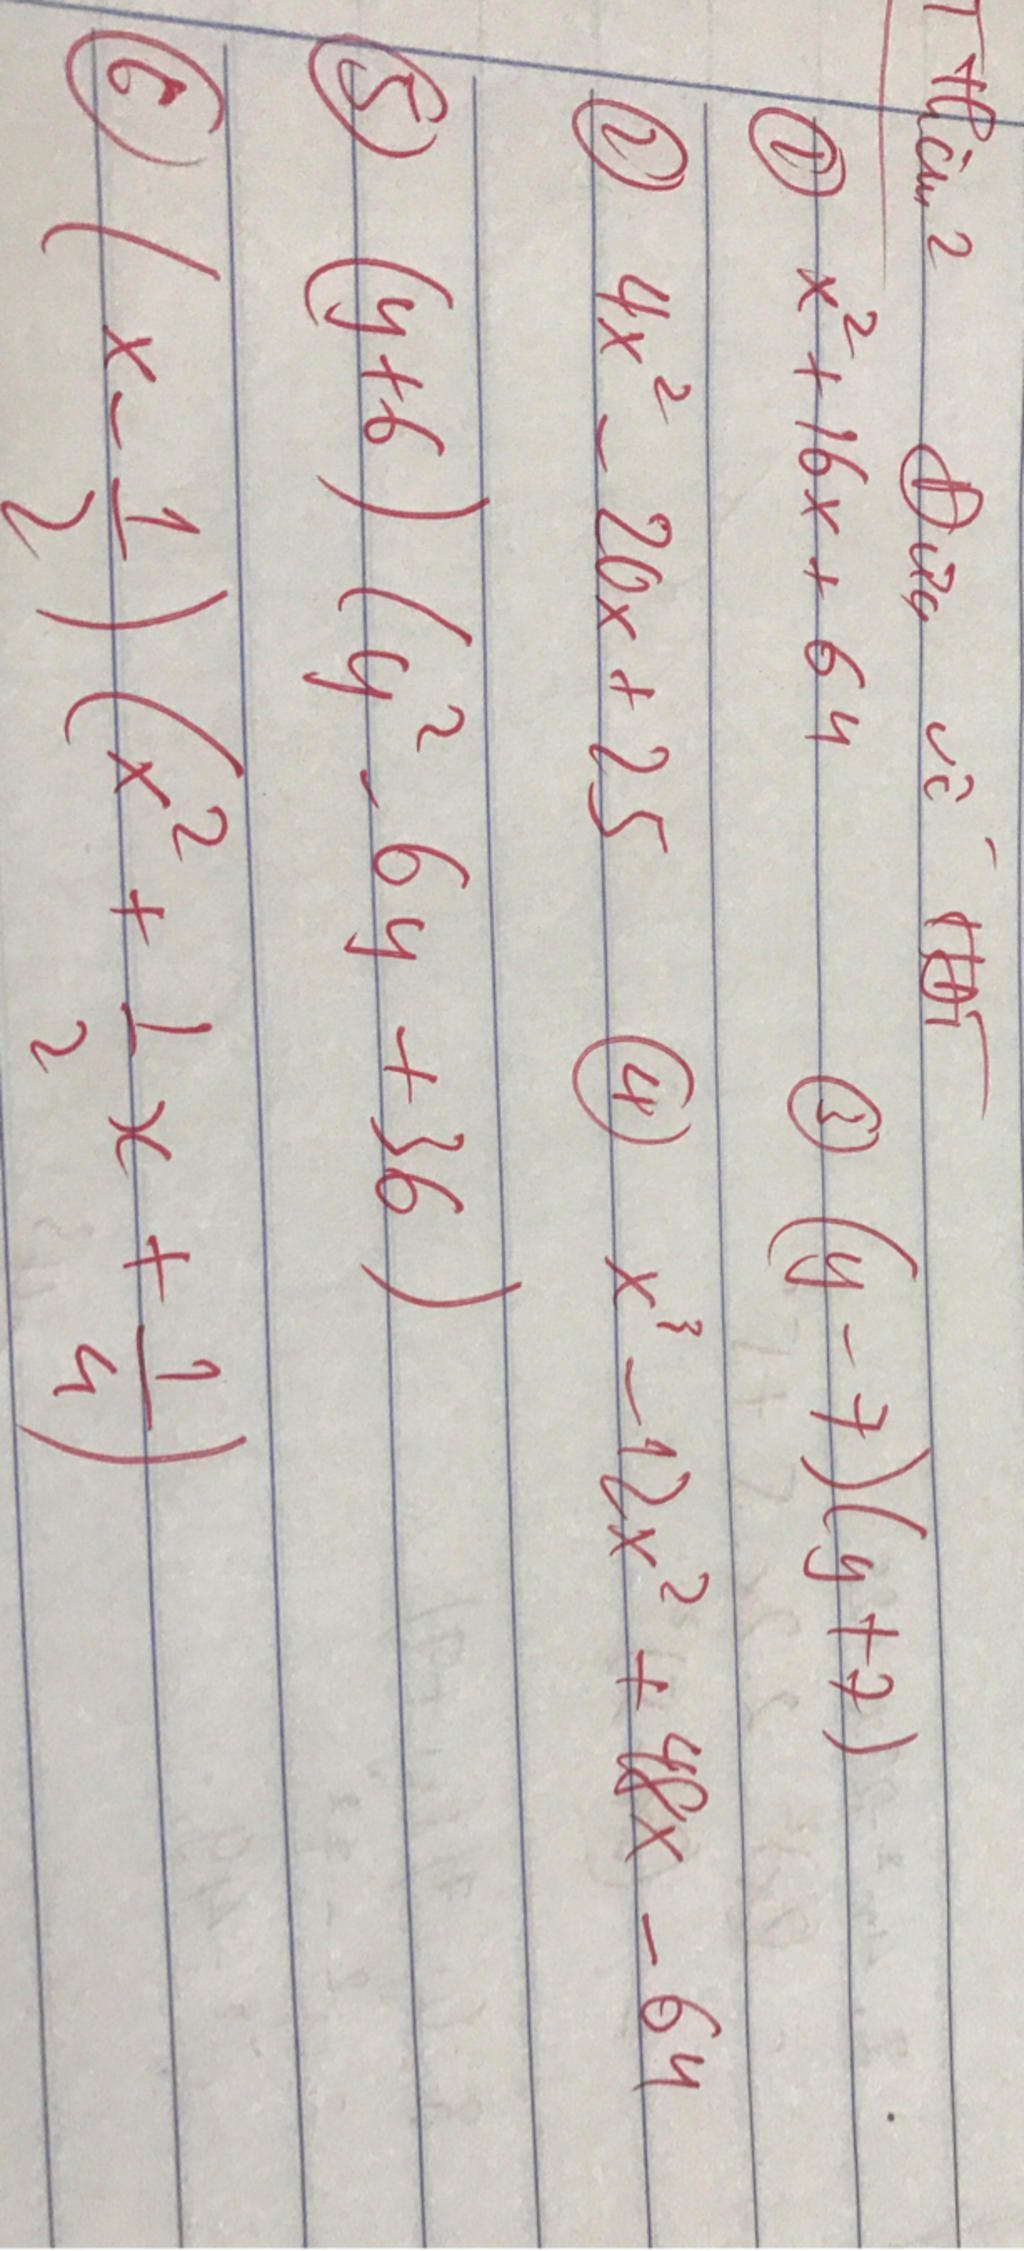 Đưa về HĐT
① x² + 16x + 64 ③ (y - 7)(y + 7)
② 4x² - 20x + 25 ④ x³ - 12x² + 48x - 64
⑤ (y + 6)(y² - 6y + 36)
⑥ (x - 1/2)(x² + 1/2 x + 1/4)